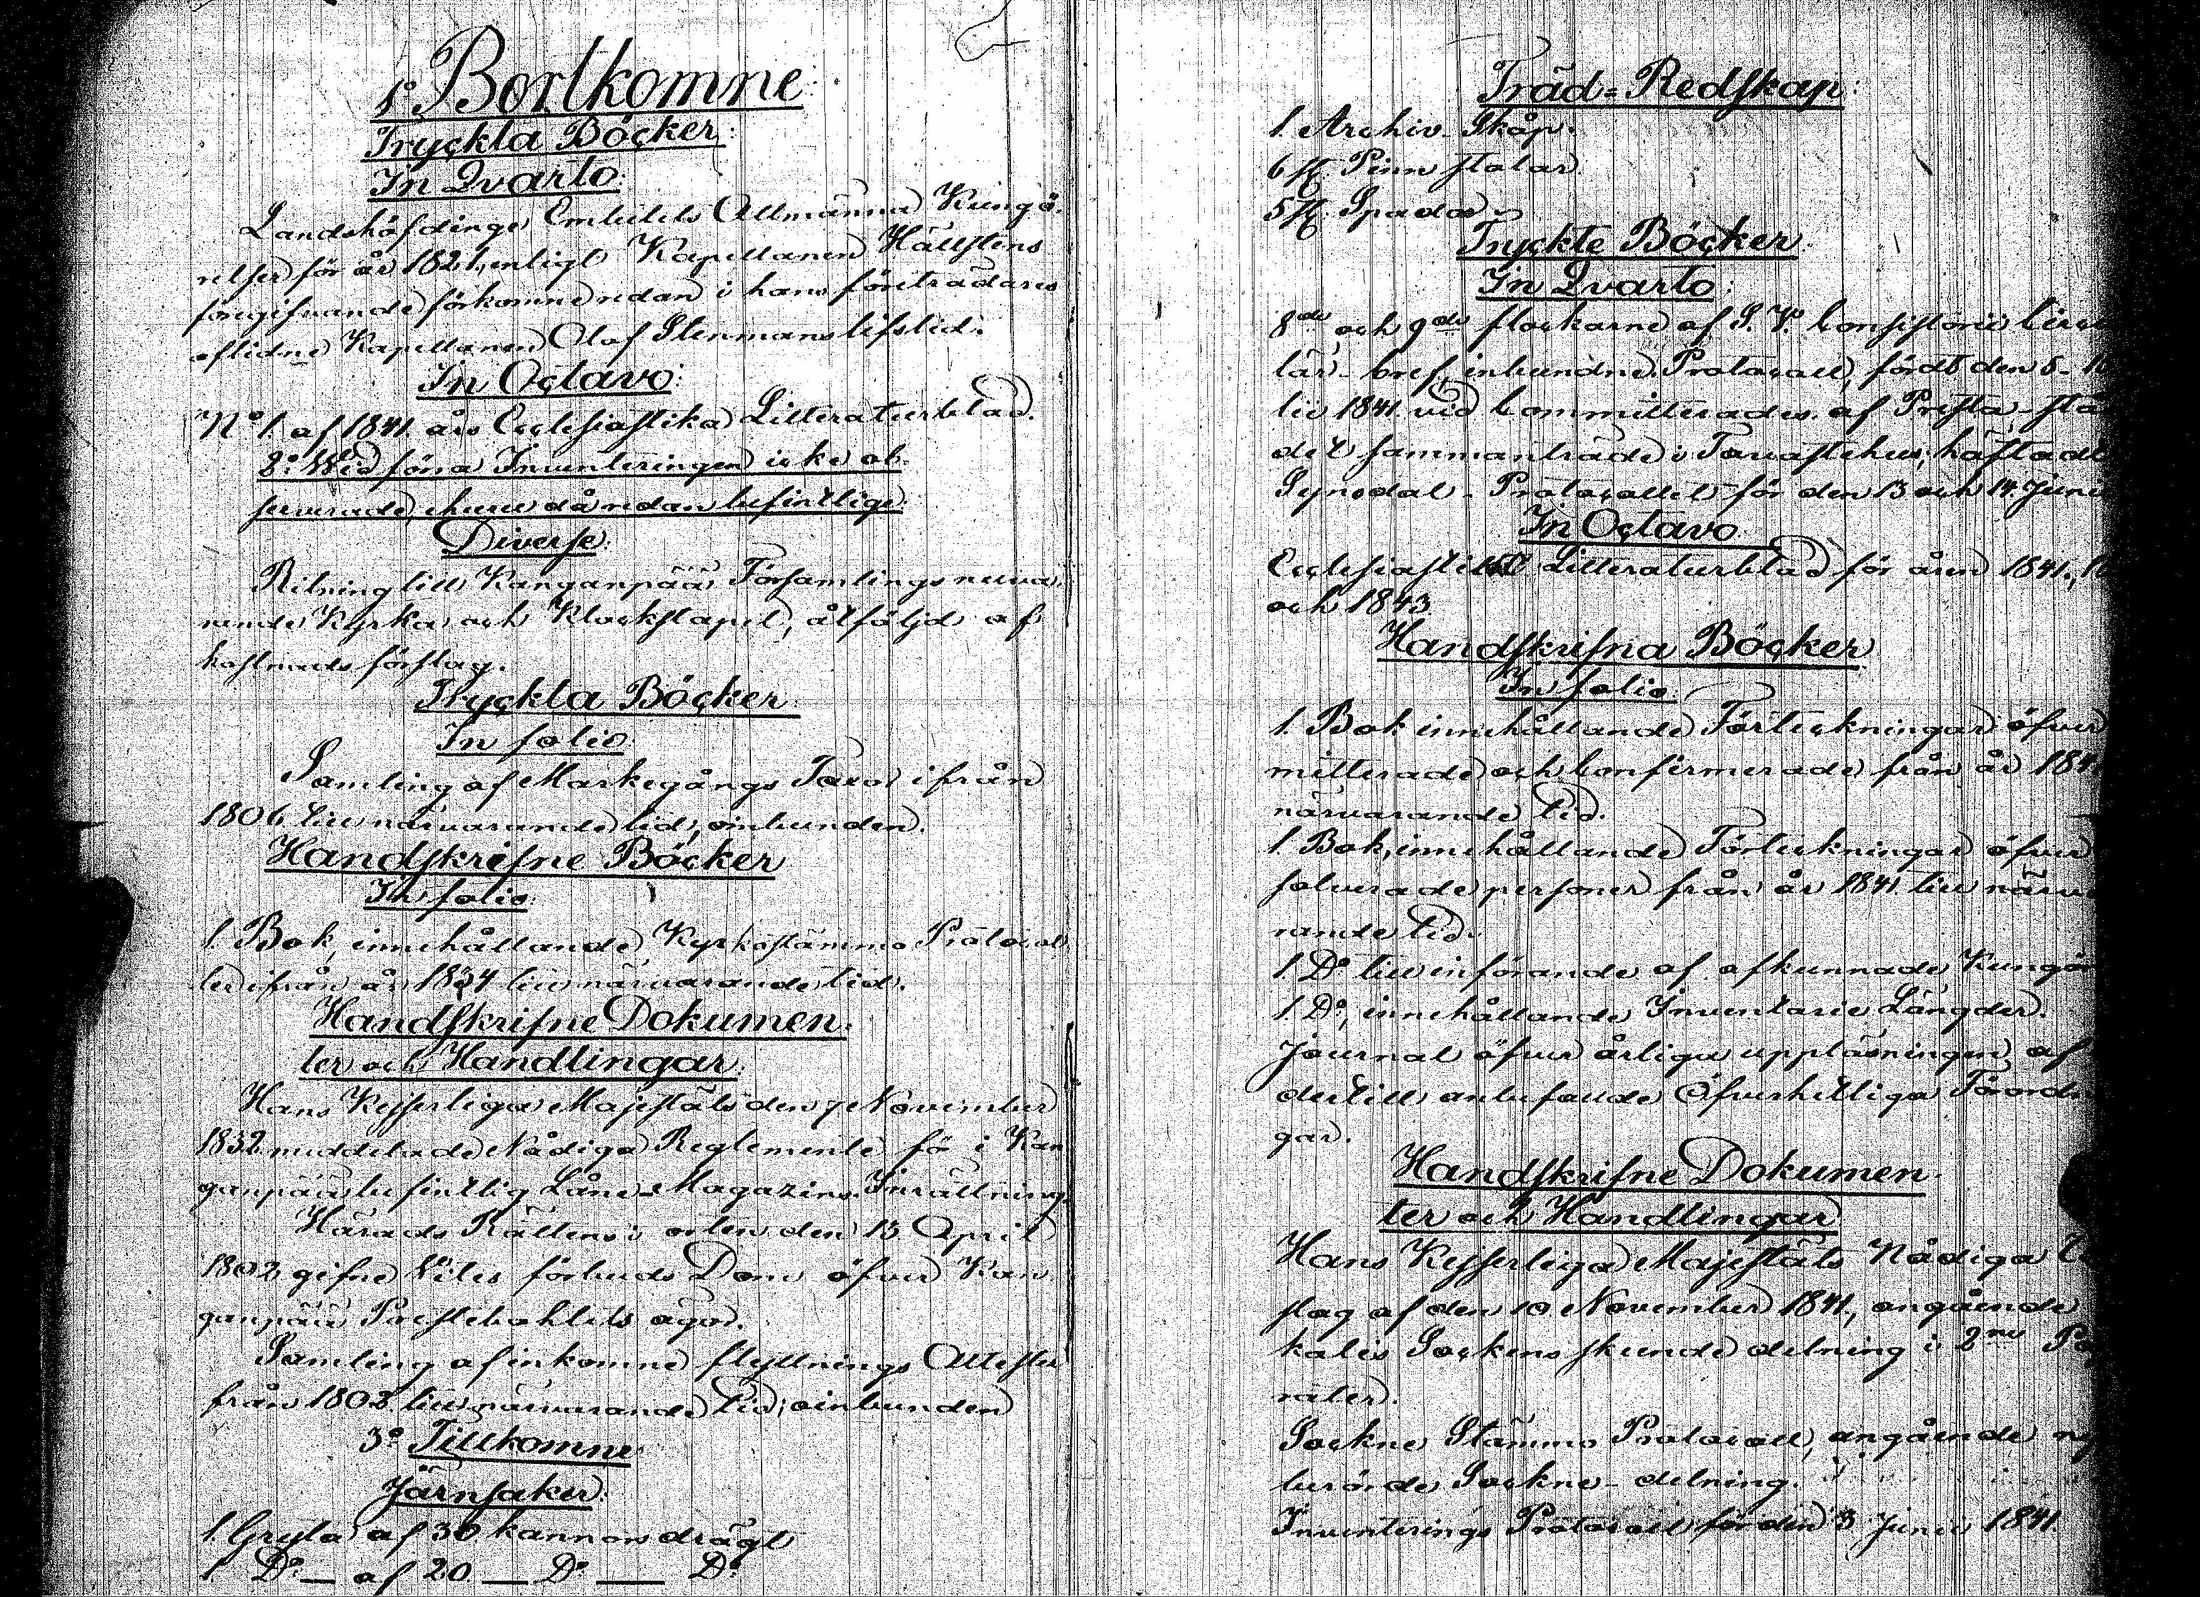 1º Bortkomne:
Tryckta Böcker:
In Qvarto:
Landshöfdinge Embetets Allmänna Kungö-
relser för år 1821, enligt Kapellanen Hällstens
föregifvande förkomne redan i hans företrädares
aflidne Kapellanen Olof Stenmans lifstid.
In Octavo:
Nº 1. af 1841. års Ecclesiastika Litteraturblad.
2º. Wid förra Inventeringen icke ob-
serverade, ehuru då redan befintlige:
Diverse:
Ritning till Kanganpää Församlings nuva-
rande Kyrka och Klockstapel, åtföljd af
kostnads förslag.
Tryckta Böcker:
In folio:
Samling af Markegångs Taxor ifrån
1806 till närvarande tid, oinbunden.
Handskrifne Böcker
In folio:
1. Bok, innehållande Kyrkostämmo Protocol-
ler ifrån år 1834 till närvarande tid.
Handskrifne Dokumen-
ter och Handlingar:
Hans Kejserliga Majestäts den 7 November
1832 meddelade Nådiga Reglemente för i Kan-
ganpää befintlig Låne-Magazins Inrättning.
Härads Rättens i orten den 13 April
1802 gifne Vites förbuds Dom öfver Kan-
ganpää Prestebohlets ägor.
Samling af inkomne flyttnings Attester
från 1803 till närvarande tid; oinbunden
3º Tillkomne
Järnsaker:
1. Gryta af 30 kannors drägt
1. Dº — af 20 — Dº — Dº
Träd-Redskap:
1. Archiv-Skåp.
6 st. Pinn stolar
5 st. Spadar
Tryckte Böcker:
In Qvarto:
8de och 9de flockarne af S. V. Consistorii Circu
lär-bref, inbundne. Protocoll, fördt den 5-
lii 1841 vid Committerades af Presta-stå
det sammanträde i Tavastehus, häftadt
Synodal-Protocollet för den 13 och 14 Juni
In Octavo
Litteraturblad för åren 1841,
och 1843
Handskrifna Böcker
In folio:
1. Bok innehållande Förteckningar öfver
mitterade och Confirmerade från år 184
närvarande tid.
1. Bok, innehållande Förteckningar öfver
solverade personer från år 1841 till närva
rande tid.
1. Dº till införande af afkunnade Kungö
1. Dº, innehållande Inventarie Längder.
Journal öfver årliga uppläsningen af
dertill anbefallde Öfverhetliga Förord
gar.
Handskrifne Dokumen-
ter och Handlingar
Hans Kejserliga Majestäts Nådiga
slag af den 10 November 1841, angående
kalis Sockens skeende delning i 2ne Pa
rater.
Sockne Stämmo Protocoll, angående
berörde Sockne-delning.
Inventerings Protocoll för den 3 Junii 1841.